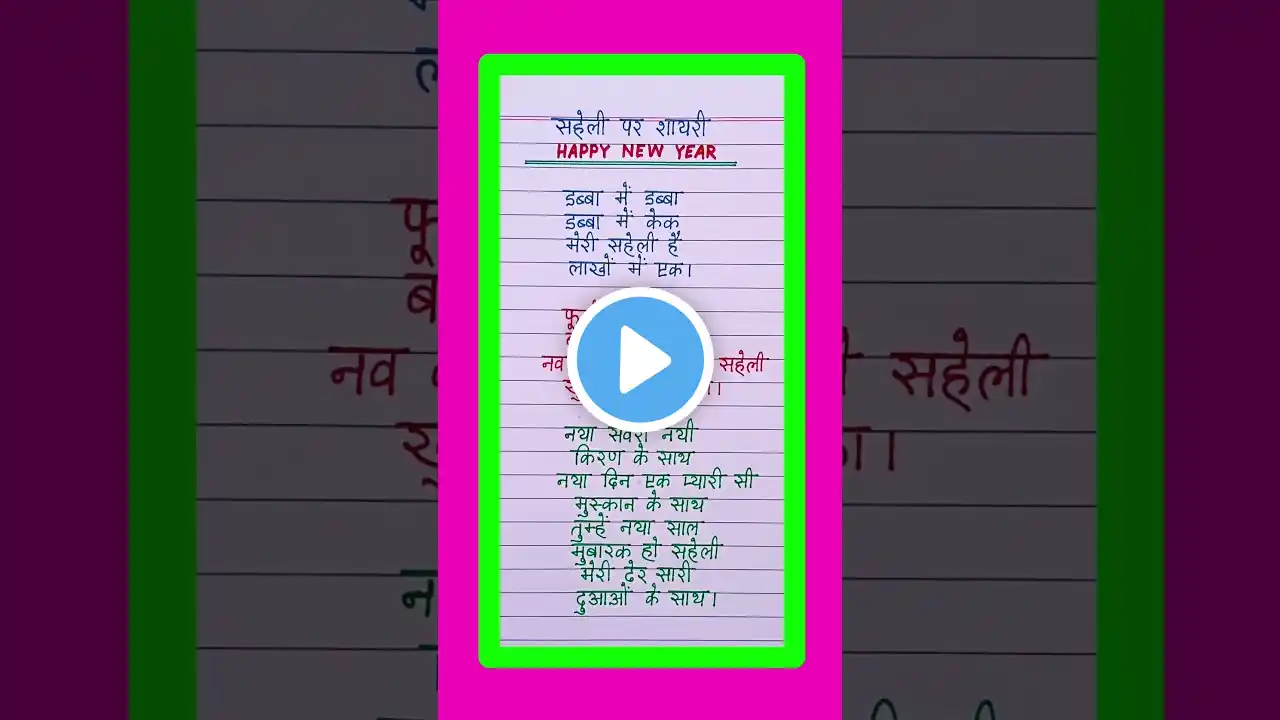 सहेली पर शायरी
HAPPY NEW YEAR
डब्बा में डब्बा
डब्बा में केक
मेरी सहेली है
लाखों में एक।
फू
नव सहेली
नया सवेरा नयी
किरण के साथ
नया दिन एक प्यारी सी
मुस्कान के साथ
तुम्हें नया साल
मुबारक हो सहेली
मेरी ढेर सारी
दुआओं के साथ।